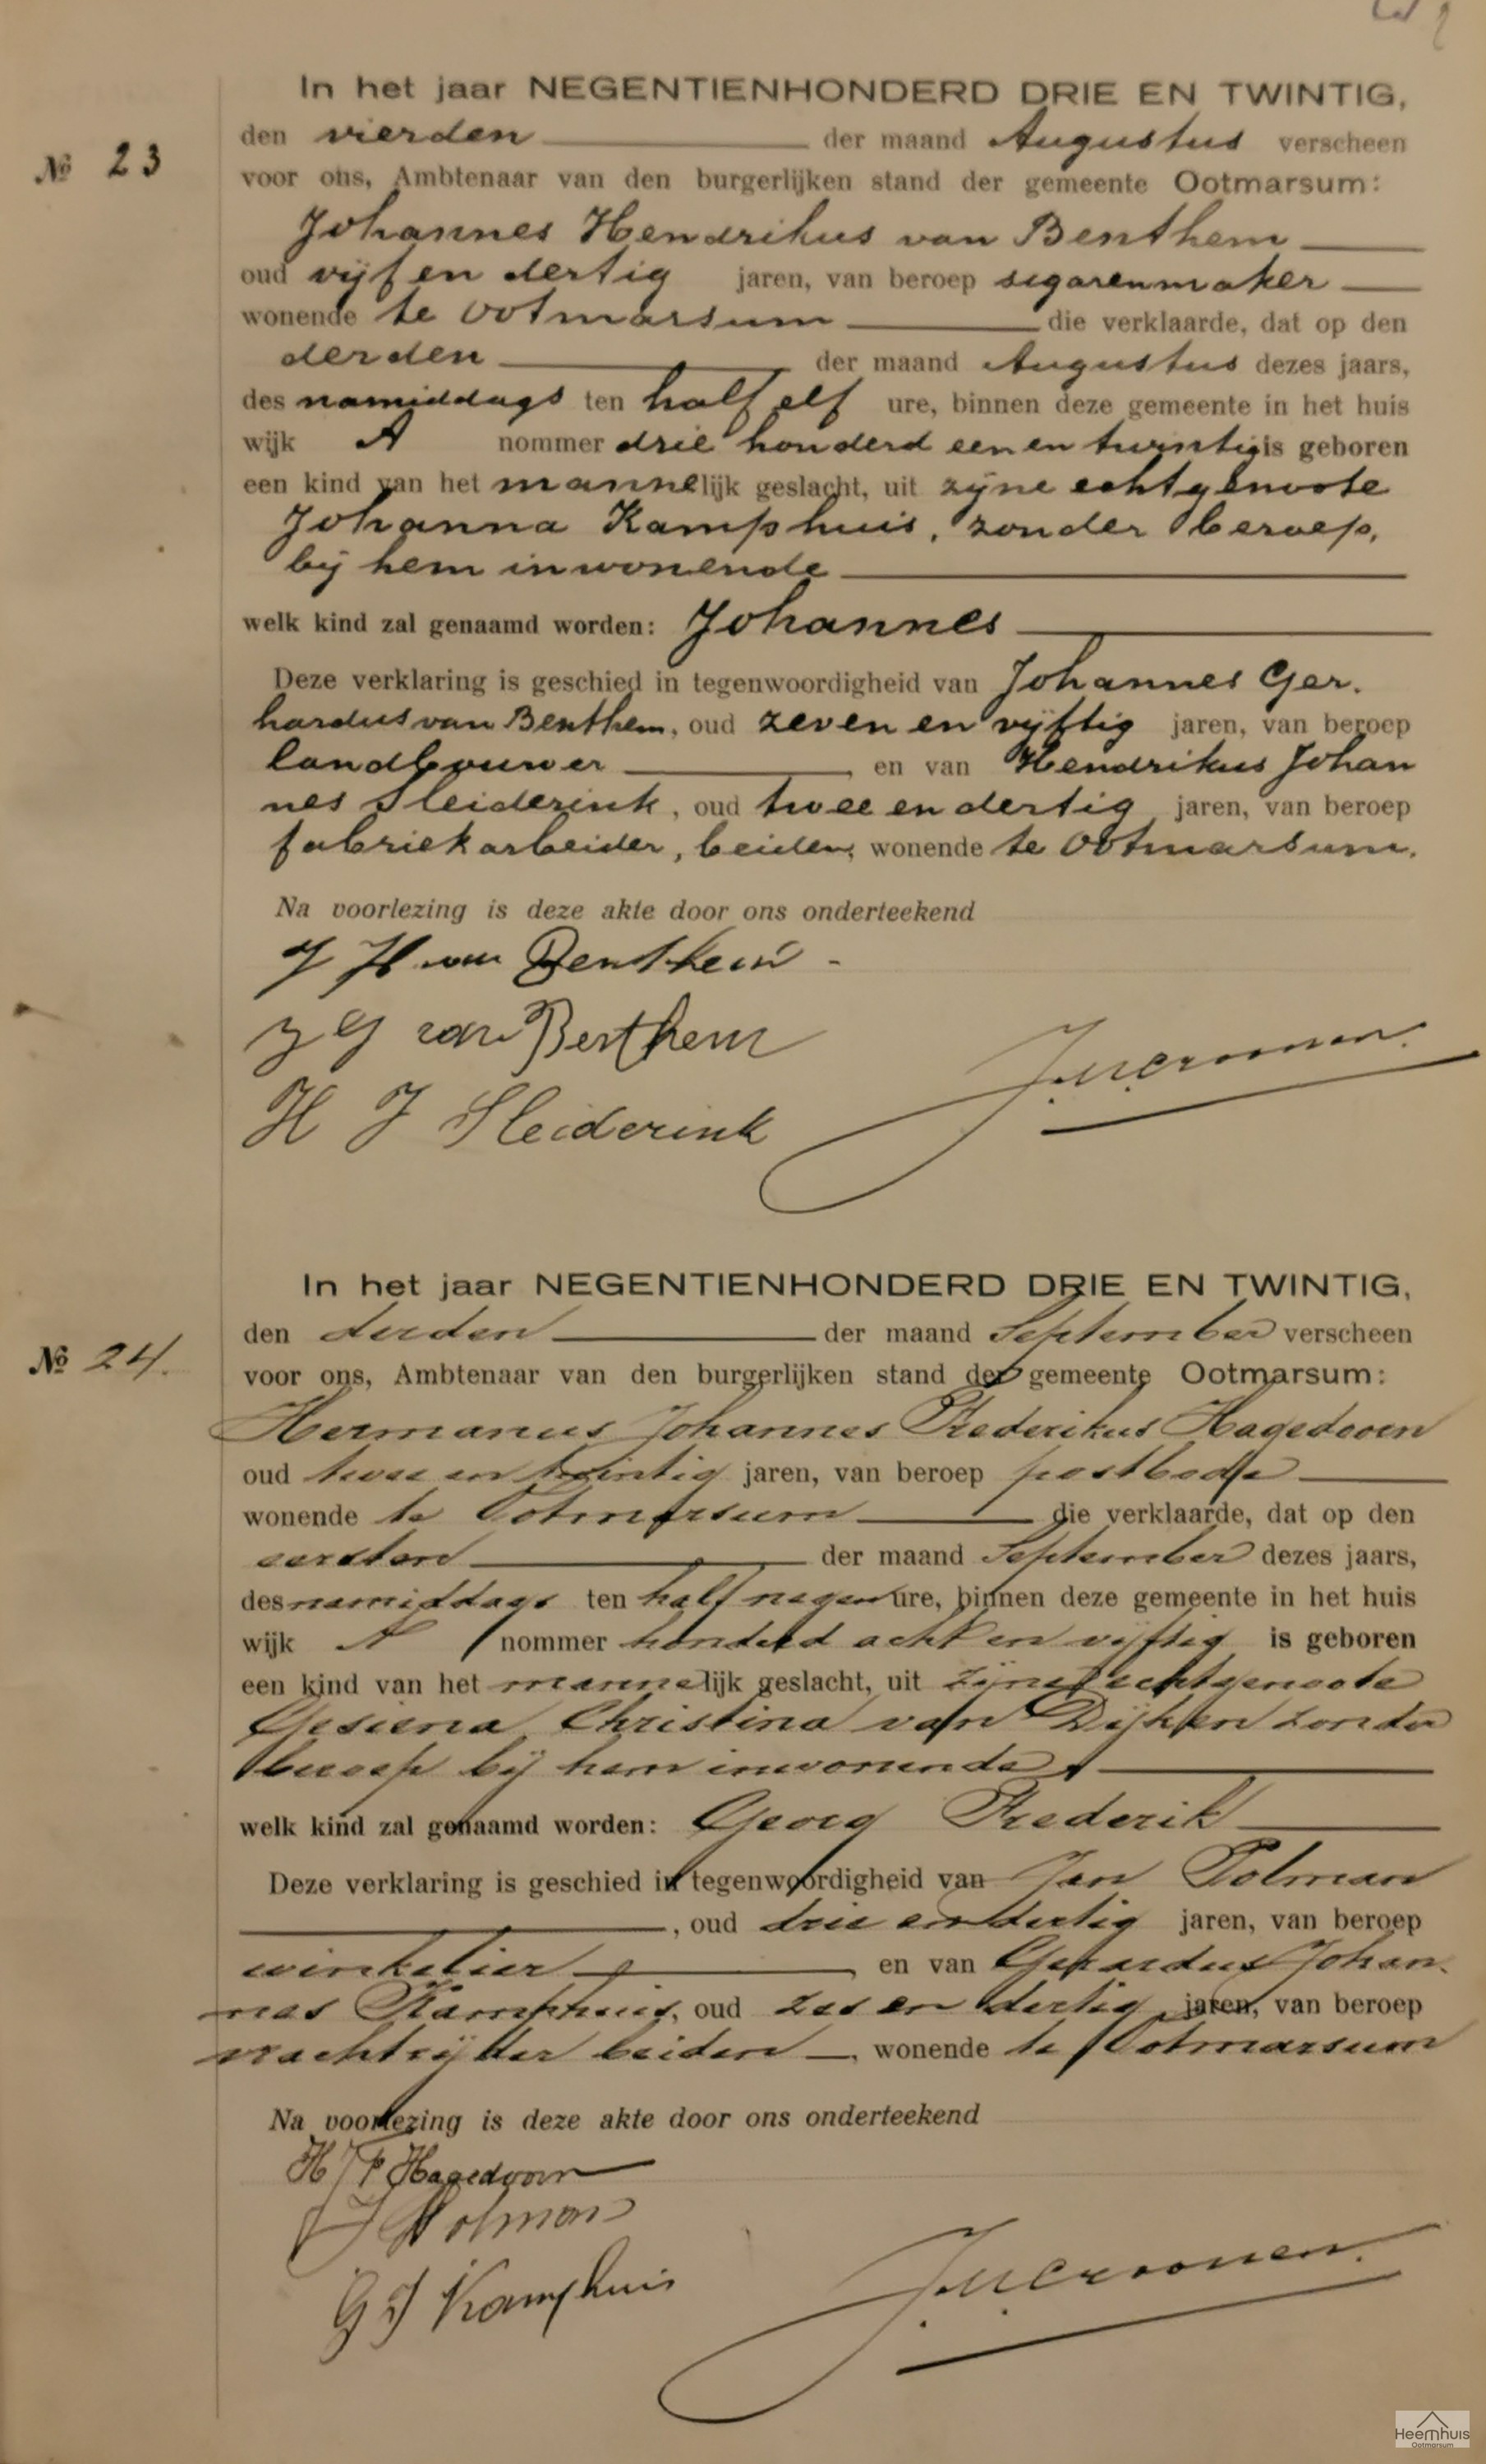 In het jaar NEGENTIENHONDERD DRIE EN TWINTIG,
den vierden der maand Augustus verscheen
№ 23
voor ons, Ambtenaar van den burgerlijken stand der gemeente Ootmarsum:
Johannes Hendrikus van Benthem
oud vijf en dertig jaren, van beroep sigarenmaker
wonende te Ootmarsum die verklaarde, dat op den
derden der maand Augustus dezes jaars,
des namiddags ten half elf ure, binnen deze gemeente in het huis
wijk A nommer drie honderd een en twintig is geboren
een kind van het mannelijk geslacht, uit zijne echtgenoote
Johanna Kamphuis, zonder beroep,
bij hem inwonende
welk kind zal genaamd worden: Johannes
Deze verklaring is geschied in tegenwoordigheid van Johannes Ger.
hardus van Benthem, oud zeven en vijftig jaren, van beroep
landbouwer en van Hendrikus Johan
nes Sleiderink, oud twee en dertig jaren, van beroep
fabriekarbeider, beiden, wonende te Ootmarsum.
Na voorlezing is deze akte door ons onderteekend
J H van Benthem
J G van Benthem
H J Sleiderink
In het jaar NEGENTIENHONDERD DRIE EN TWINTIG,
den derden der maand September verscheen
№ 24.
voor ons, Ambtenaar van den burgerlijken stand der gemeente Ootmarsum:
Hermanus Johannes Frederikus Hagedoorn
oud twee en twintig jaren, van beroep postbode
wonende te Ootmarsum die verklaarde, dat op den
eersten der maand September dezes jaars,
des namiddags ten half negen ure, binnen deze gemeente in het huis
wijk A nommer honderd acht en vijftig is geboren
een kind van het mannelijk geslacht, uit zijne echtgenoote
Gesiena Christina van Dijken zonder
beroep bij hem inwonende
welk kind zal genaamd worden: Georg Frederik
Deze verklaring is geschied in tegenwoordigheid van Jan Polman
, oud drie en dertig jaren, van beroep
winkelier en van Gerardus Johan
nes Kamphuis, oud zes en dertig, jaren, van beroep
vrachtrijder beiden, wonende te Ootmarsum
Na voorlezing is deze akte door ons onderteekend
H J F Hagedoorn
J Polman
G J Kamphuis
Heemhuis
Ootmarsum